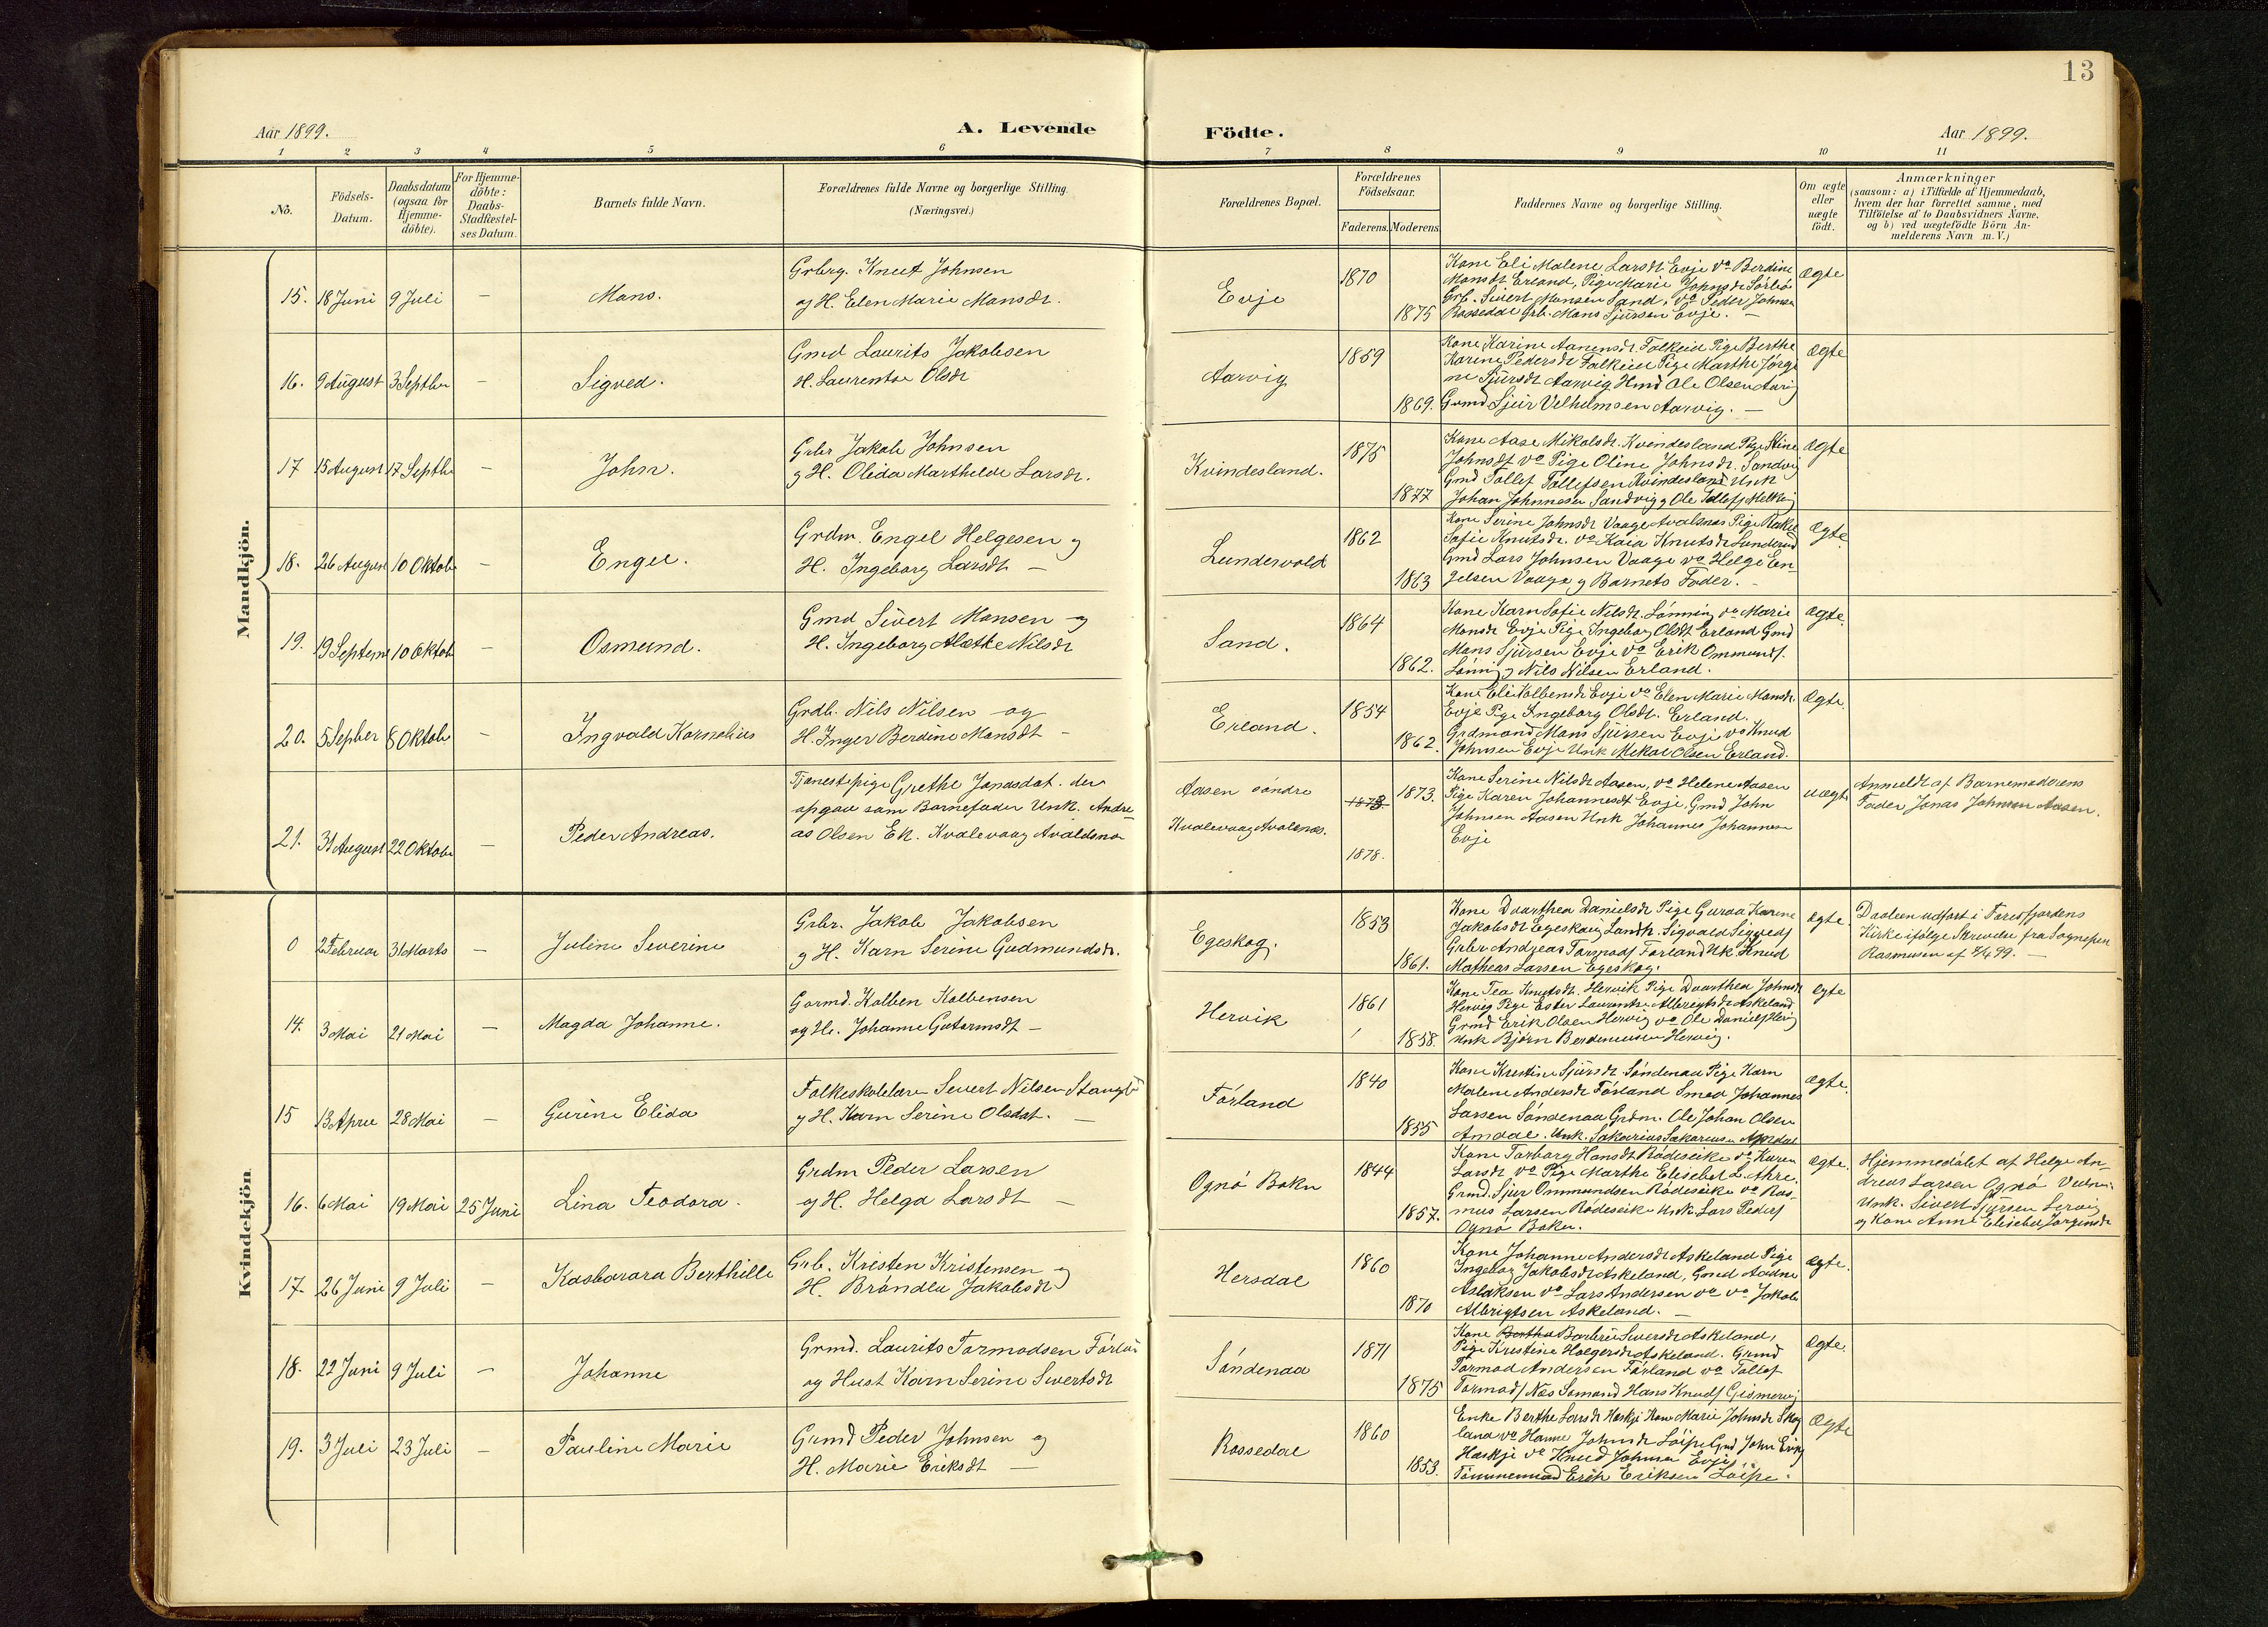 13
Aar 1899.
A. Levende
Födte.
Aar 1899.
1 2 3 4 5 6 7 8 9 10 11
No.
Födsels-
Datum.
Daabsdatum
(ogsaa for
Hjemme-
döbte).
For Hjemme-
döbte:
Daabs-
Stadfæstel-
ses Datum.
Barnets fulde Navn.
Forældrenes fulde Navne og borgerlige Stilling.
(Næringsvei.)
Forældrenes Bopæl.
Forældrenes
Födselsaar.
Faderens. Moderens.
Faddernes Navne og borgerlige Stilling.
Om ægte
eller
uægte
födt.
Anmærkninger
(saasom: a) i Tilfælde af Hjemmedaab,
hvem der har forrettet samme, med
Tilföielse af to Daabsvidners Navne.
og b) ved uægtefödte Börn An-
melderens Navn m. V.)
Mandkjön.
15. 18 Juni 9 Juli - Mans.
Grbrg. Knut Johnsen
og H. Elen Marie Mansdt.
Evje
1870
1875
Kone Eli Malene Larsdt Evje do Berdine
Mansdt Erland, Pige Marie Johnsdt
Grb. Sivert Mansen Sand, do Peder Johnsen
Rossedal Grb. Mans Sjursen Evje. -
Ægte
16. 9 August 3 Septbr - Sigved.
Gmd Laurits Jakobsen
H. Laurentse Olsdt
Aarvig
1859
1869.
Kone Karine Aanensdt. Falkeid Pige Berthe
Karine Pedersdt Falkeid Pige Marthe Jørgi
ne Sjursdt Aarvig Hmd Ole Olsen Aarvig
Grmd Sjur Velhelmsen Aarvig. -
Ægte
17 15 August 17 Septbr - John.
Grbr Jakob Johnsen
og H. Olida Marthilde Larsdt.
Kvindesland.
1875
1877
Kone Aase Mikalsdt. Kvindesland Pige Stine
Johnsdt do Pige Oline Johnsdt. Sandvig
Gmd Tollef Tollefsen Kvindesland Unk
Johan Johnnesen Sandvig og Ole Tollefs
Ægte
18. 26 August 10 Oktob - Engel.
Grdm. Engel Helgesen og
H. Ingeborg Larsdt -
Lundervold
1862
1863
Kone Serine Johnsdt Vaage Avalsnes Pige Rakel
Sofie Knutsdt. do Kaia Knutsdt Lundervd
Gmd Lars Johnsen Vaage do Helge En-
gelsen Vaage og Barnets Fader. -
Ægte
19. 19 Septembr 10 Oktob - Osmund.
Gmd Sivert Mansen og
H. Ingeborg Alette Nilsdt
Sand.
1864
1862.
Kone Karn Sofie Nilsdt. Lønning do Marie
Mansdt Evje Pige Ingeborg Olsdt Erland Gmd
Mans Sjursen Evje do Erik Ommunds.
Lønnig og Nils Nilsen Erland.
Ægte.
20. 5 Septber 8 Oktob - Ingvald Kornelius
Grdb. Nils Nilsen og
H. Inger Berdine Mansdt -
Erland.
1854
1862.
Kone Eli Kolbensdt Evje do Elen Marie Mansdt.
Evje Pige Ingeborg Olsdt. Erland.
Grdmand Mans Sjursen Evje do Knud
Johnsen Evje Unk Mikal Olsen Erland.
Ægte.
21. 31 August 22 Oktobr - Peder Andreas.
Tjenestepige Grethe Jonasdat. der
opgav som Barnefader Unk. Andre
as Olsen Ek. Kvalevaag Avaldsnes
Aasen søndre
Kvalevaag Avalsnes.
1873.
1878.
Kone Serine Nilsdt Aasen, do Helene Aasen
Pige Karen Johannesdt Evje, Gmd John
Johnsen Aasen Unk Johannes Johannesen
Evje
uægte
Anmeldt af Barnemoderens
Fader Jonas Johnsen Aasen.
Kvindekjön.
0 2 Februar 31 Marts - Juline Severine
Grbr. Jakob Jakobsen
og H. Karn Serine Gudmundsdt.
Egeskog.
1853
1861.
Kone Doarthea Danielsdt Pige Guroa Karine
Jakobsdt Egeskaug Landh. Sigvald Sigveds
Grbr Andreas Førland Unk Knud
Matheas Larsen Egeskog.
Ægte
Daaben udført i
Kirke ifølge Skrivelse fra Sognepr
Rasmusen af 4/4 99. -
14. 3 Mai 21 Mai - Magda Johanne.
Garmd. Kolben Kolbensen
og H. Johanne Gutormsdt -
Hervik
1861
1858.
Kone Tea Knutsdt. Hervik Pige Doarthea Johnsdt
Hervig Pige Ester Laurentse Albregtsdt Askeland
Grmd Erik Olsen Hervig do Ole Daniels Hervig
Unk Bjørn Hervig.
Ægte
15 13 April 28 Mai - Gurine Elida
Folkeskolelærer Sivert Nilsen Stangeb
og H. Karn Serine Olsdat. -
Førland
1840
1855
Kone Kristine Sjursdt. Søndenaa Pige Karn
Malene Andersdt Førland Smed Johannes
Larsen Søndenaa Grdm. Ole Johan Olsen
Amdal. Unk. Sakarias Sakariasen Amdal
Ægte.
16. 6 Mai 19 Mai 25 Juni Lina Teodora.
Grdm Peder Larsen
og H. Helga Larsdt -
Ognø Bokn
1844
1857.
Kone Torborg Hansdt Rødeseike do Karen
Larsdt do Pige Marthe Elisebet L. Ahre.
Grmd. Sjur Ommundsen Rødeseike do Ras-
mus Larsen Rødeseike Unk. Lars Peders
Ognø Bokn.
Ægte.
Hjemmedøbt af Helge An-
dreas Larsen Ognø Vidner:
Unk. Sivert Sjursen
og Kone Anne Elisebet Jørginsdt
17. 26 Juni 9 Juli - Kasbarara Berthille
Grb. Kristen Kristensen og
H. Brøndla Jakobsdt
Hersdal
1860
1870
Kone Johanne Andersdt Askeland Pige
Ingebor Jakobsdt Askeland, Gmd Aadne
Aslaksen do Lars Andersen do do Jakob
Albrigtsen Askeland. -
Ægte.
18. 22 Juni 9 Juli - Johanne
Grmd. Laurits Tormodsen
og Hust Karn Serine Sivertsdt
Søndenaa
1871
1875
Kone Bertha Barbrie Siversdt Askeland,
Pige Kristine Holgersdt Askeland. Grmd
Tormod Andersen Førland do Tollef
Tormods Næs Sømand Hans Knuds Gismervig
Ægte.
19. 3 Juli 23 Juli - Pauline Marie
Grmd Peder Johnsen og
H. Marie Eriksdt -
Rossedal
1860
1853.
Enke Berthe Larsdt Haskje Kone Marie Johnsdt Skog
land do Hanne Johnsdt Løipe Gmd John
Haskje do Knud Johnsen Evje
Tømmermand Erik Eriksen Løipe.
Ægte